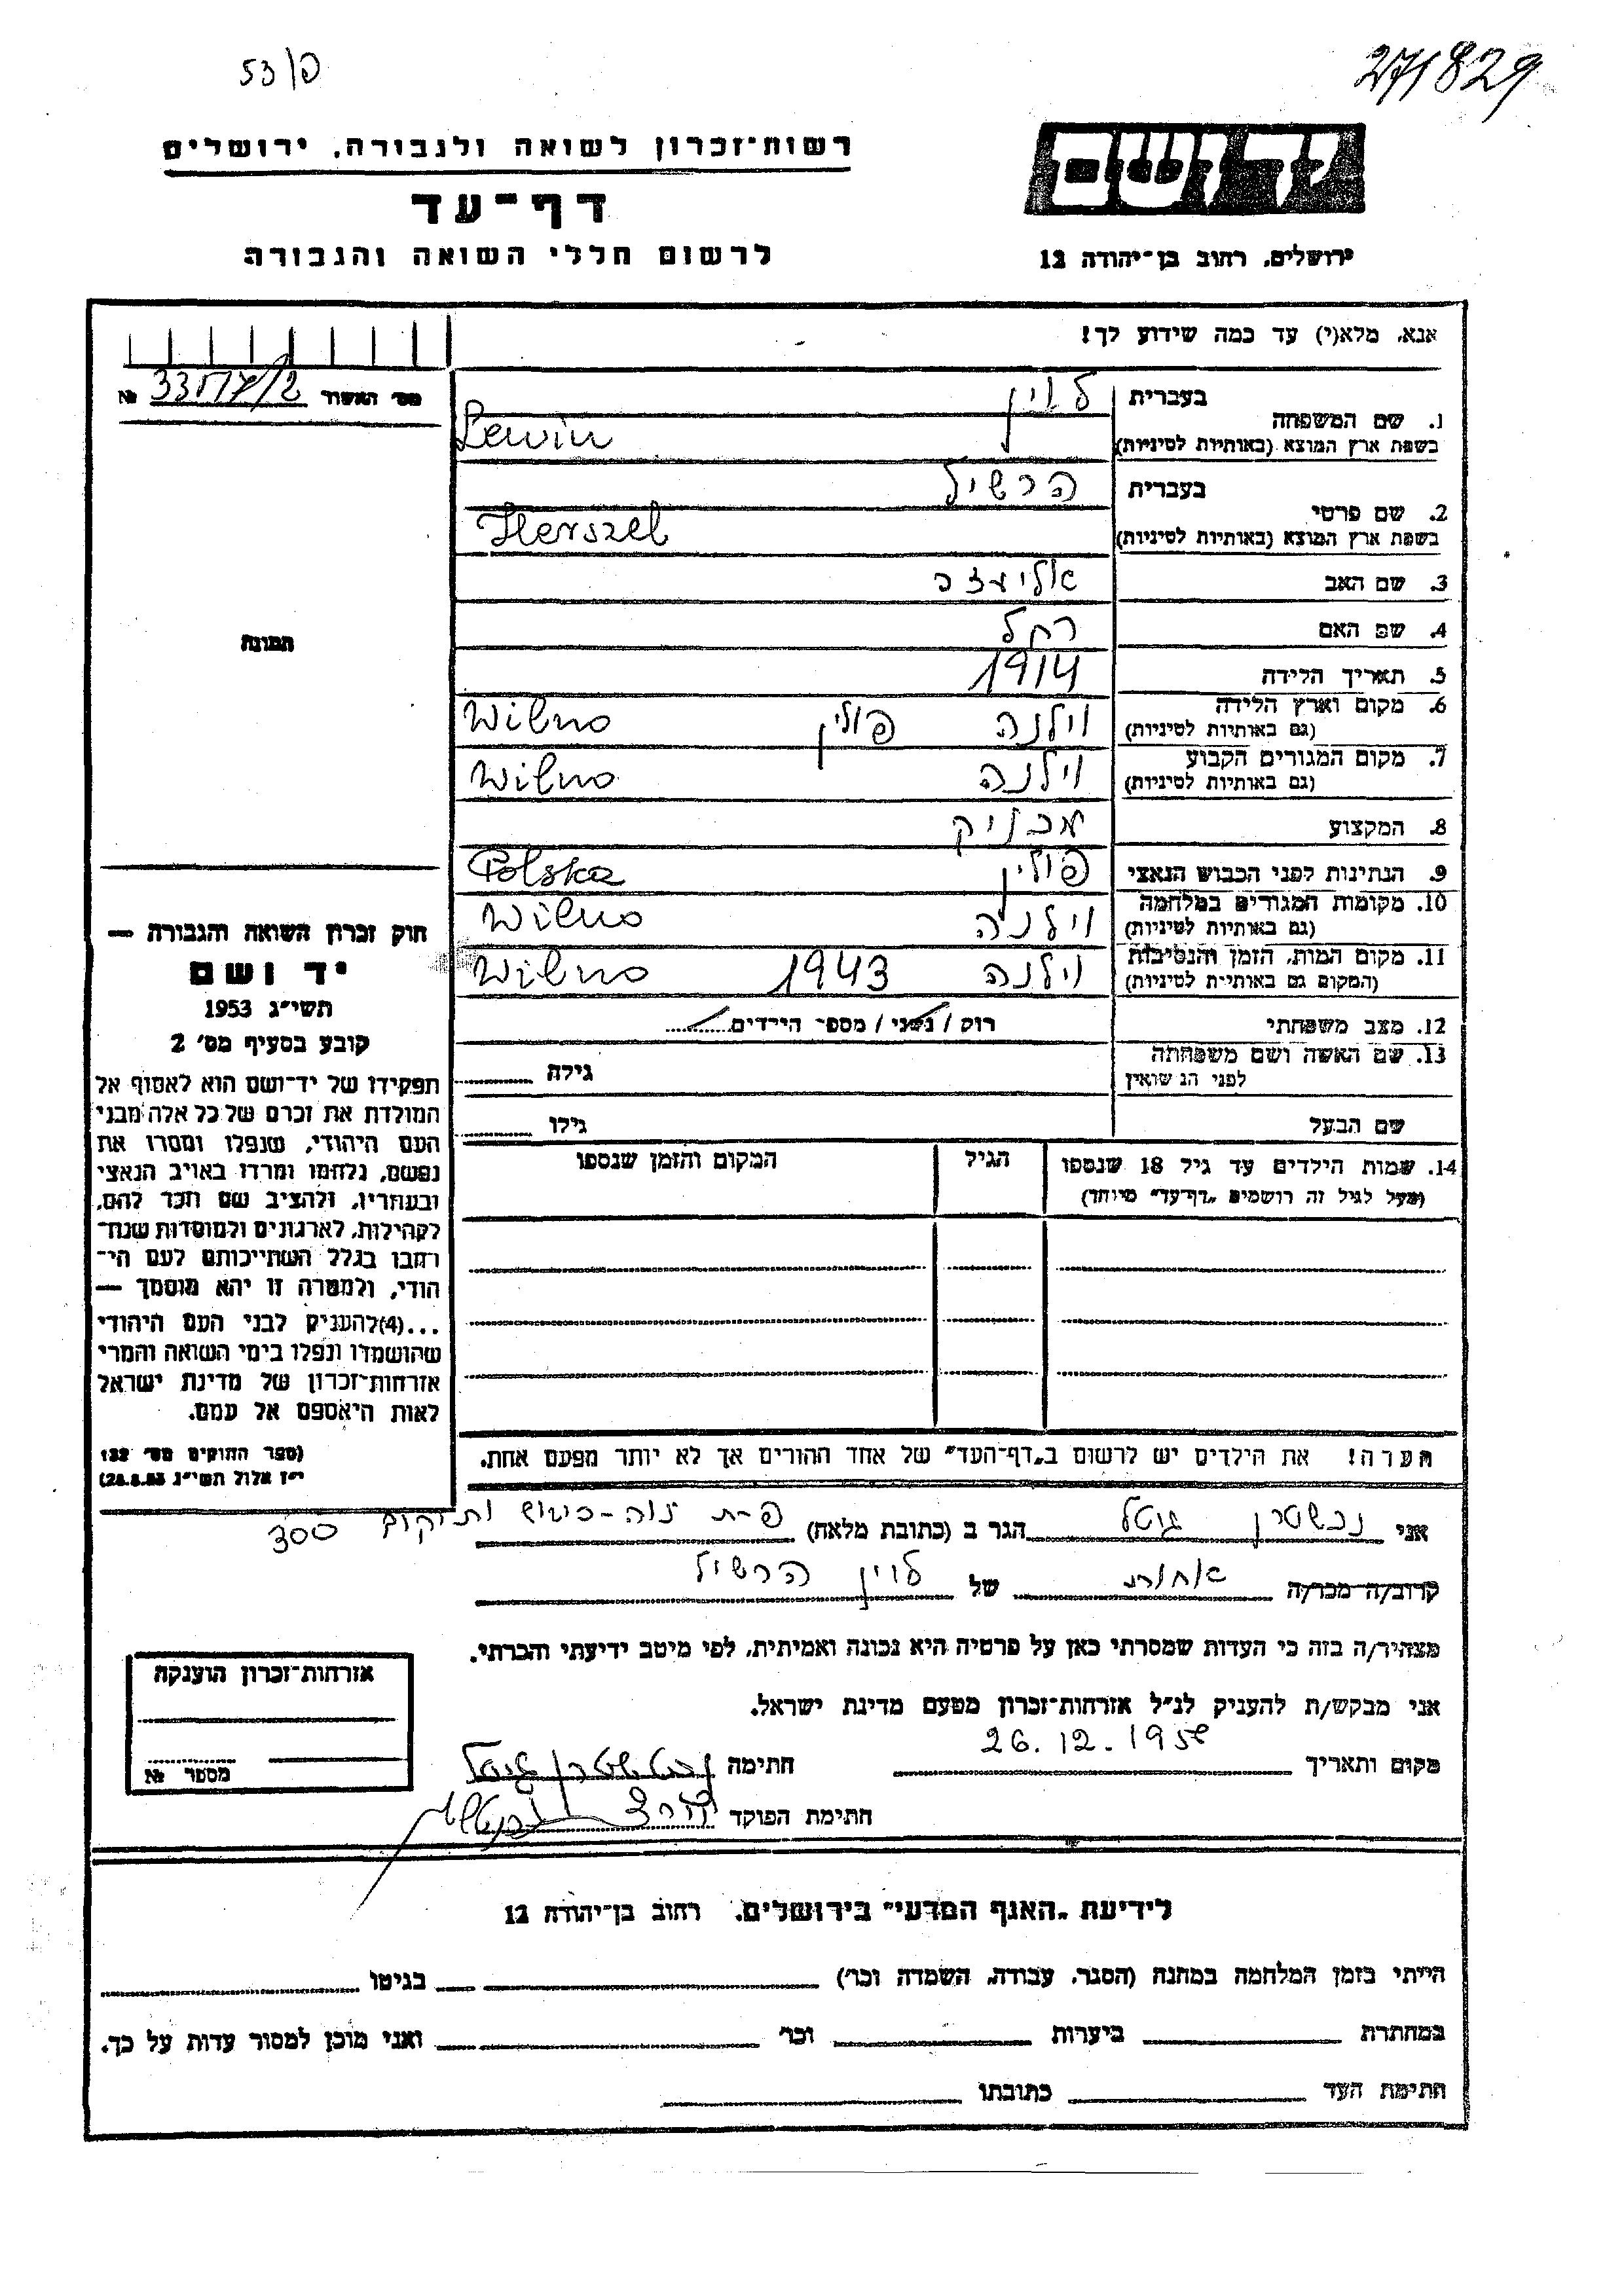 פ/53
271829
יד ושם
ירושלים, רחוב בן־יהודה 12
רשות־זכרון לשואה ולגבורה, ירושלים
דף־עד
לרשום חללי השואה והגבורה
אנא, מלא(י) עד כמה שידוע לך!
1. שם המשפחה
בעברית לוין
בשפת ארץ המוצא (באותיות לטיניות) Lewin
2. שם פרטי
בעברית הרשיל
בשפת ארץ המוצא (באותיות לטיניות) Herszel
3. שם האב אליעזר
4. שם האם רחל
5. תאריך הלידה 1914
6. מקום וארץ הלידה (גם באותיות לטיניות) וילנה פולין Wilno
7. מקום המגורים הקבוע (גם באותיות לטיניות) וילנה Wilno
8. המקצוע מכניק
9. הנתינות לפני הכבוש הנאצי פולין Polska
10. מקומות המגורים במלחמה (גם באותיות לטיניות) וילנה Wilno
11. מקום המות, הזמן והנסיבות (המקום גם באותיות לטיניות) וילנה 1943 Wilno
12. מצב משפחתי רוק / נשוי / מספר הילדים
13. שם האשה ושם משפחתה לפני הנשואין גילה
שם הבעל גילו
14. שמות הילדים עד גיל 18 שנספו
(מעל לגיל זה רושמים „דף־עד" מיוחד)
הגיל
המקום והזמן שנספו
הערה! את הילדים יש לרשום ב„דף־העד" של אחד ההורים אך לא יותר מפעם אחת.
מס׳ האשור №
תמונה
חוק זכרון השואה והגבורה —
יד ושם
תשי״ג 1953
קובע בסעיף מס׳ 2
תפקידו של יד־ושם הוא לאסוף אל
המולדת את זכרם של כל אלה מבני
העם היהודי, שנפלו ומסרו את
נפשם, נלחמו ומרדו באויב הנאצי
ובעוזריו, ולהציב שם וזכר להם,
לקהילות, לארגונים ולמוסדות שנח־
רבו בגלל השתייכותם לעם הי־
הודי, ולמטרה זו יהא מוסמך —
...(4) להעניק לבני העם היהודי
שהושמדו ונפלו בימי השואה והמרי
אזרחות־זכרון של מדינת ישראל
לאות היאספם אל עמם.
(ספר החוקים מס׳ 132
י״ז אלול תשי״ג 28.8.53)
אני גוטל הגר ב (כתובת מלאה) פ-ת 300
קרוב/ה מכר/ה אחות של לוין הרשיל
מצהיר/ה בזה כי העדות שמסרתי כאן על פרטיה היא נכונה ואמיתית, לפי מיטב ידיעתי והכרתי.
אני מבקש/ת להעניק לנ״ל אזרחות־זכרון מטעם מדינת ישראל.
מקום ותאריך 26.12.195 חתימה
חתימת הפוקד
אזרחות־זכרון הוענקה
מספר №
לידיעת „האגף המדעי" בירושלים, רחוב בן־יהודה 12
הייתי בזמן המלחמה במחנה (הסגר, עבודה, השמדה וכו׳) בגיטו
במחתרת ביערות וכו׳ ואני מוכן למסור עדות על כך.
חתימת העד כתובתו